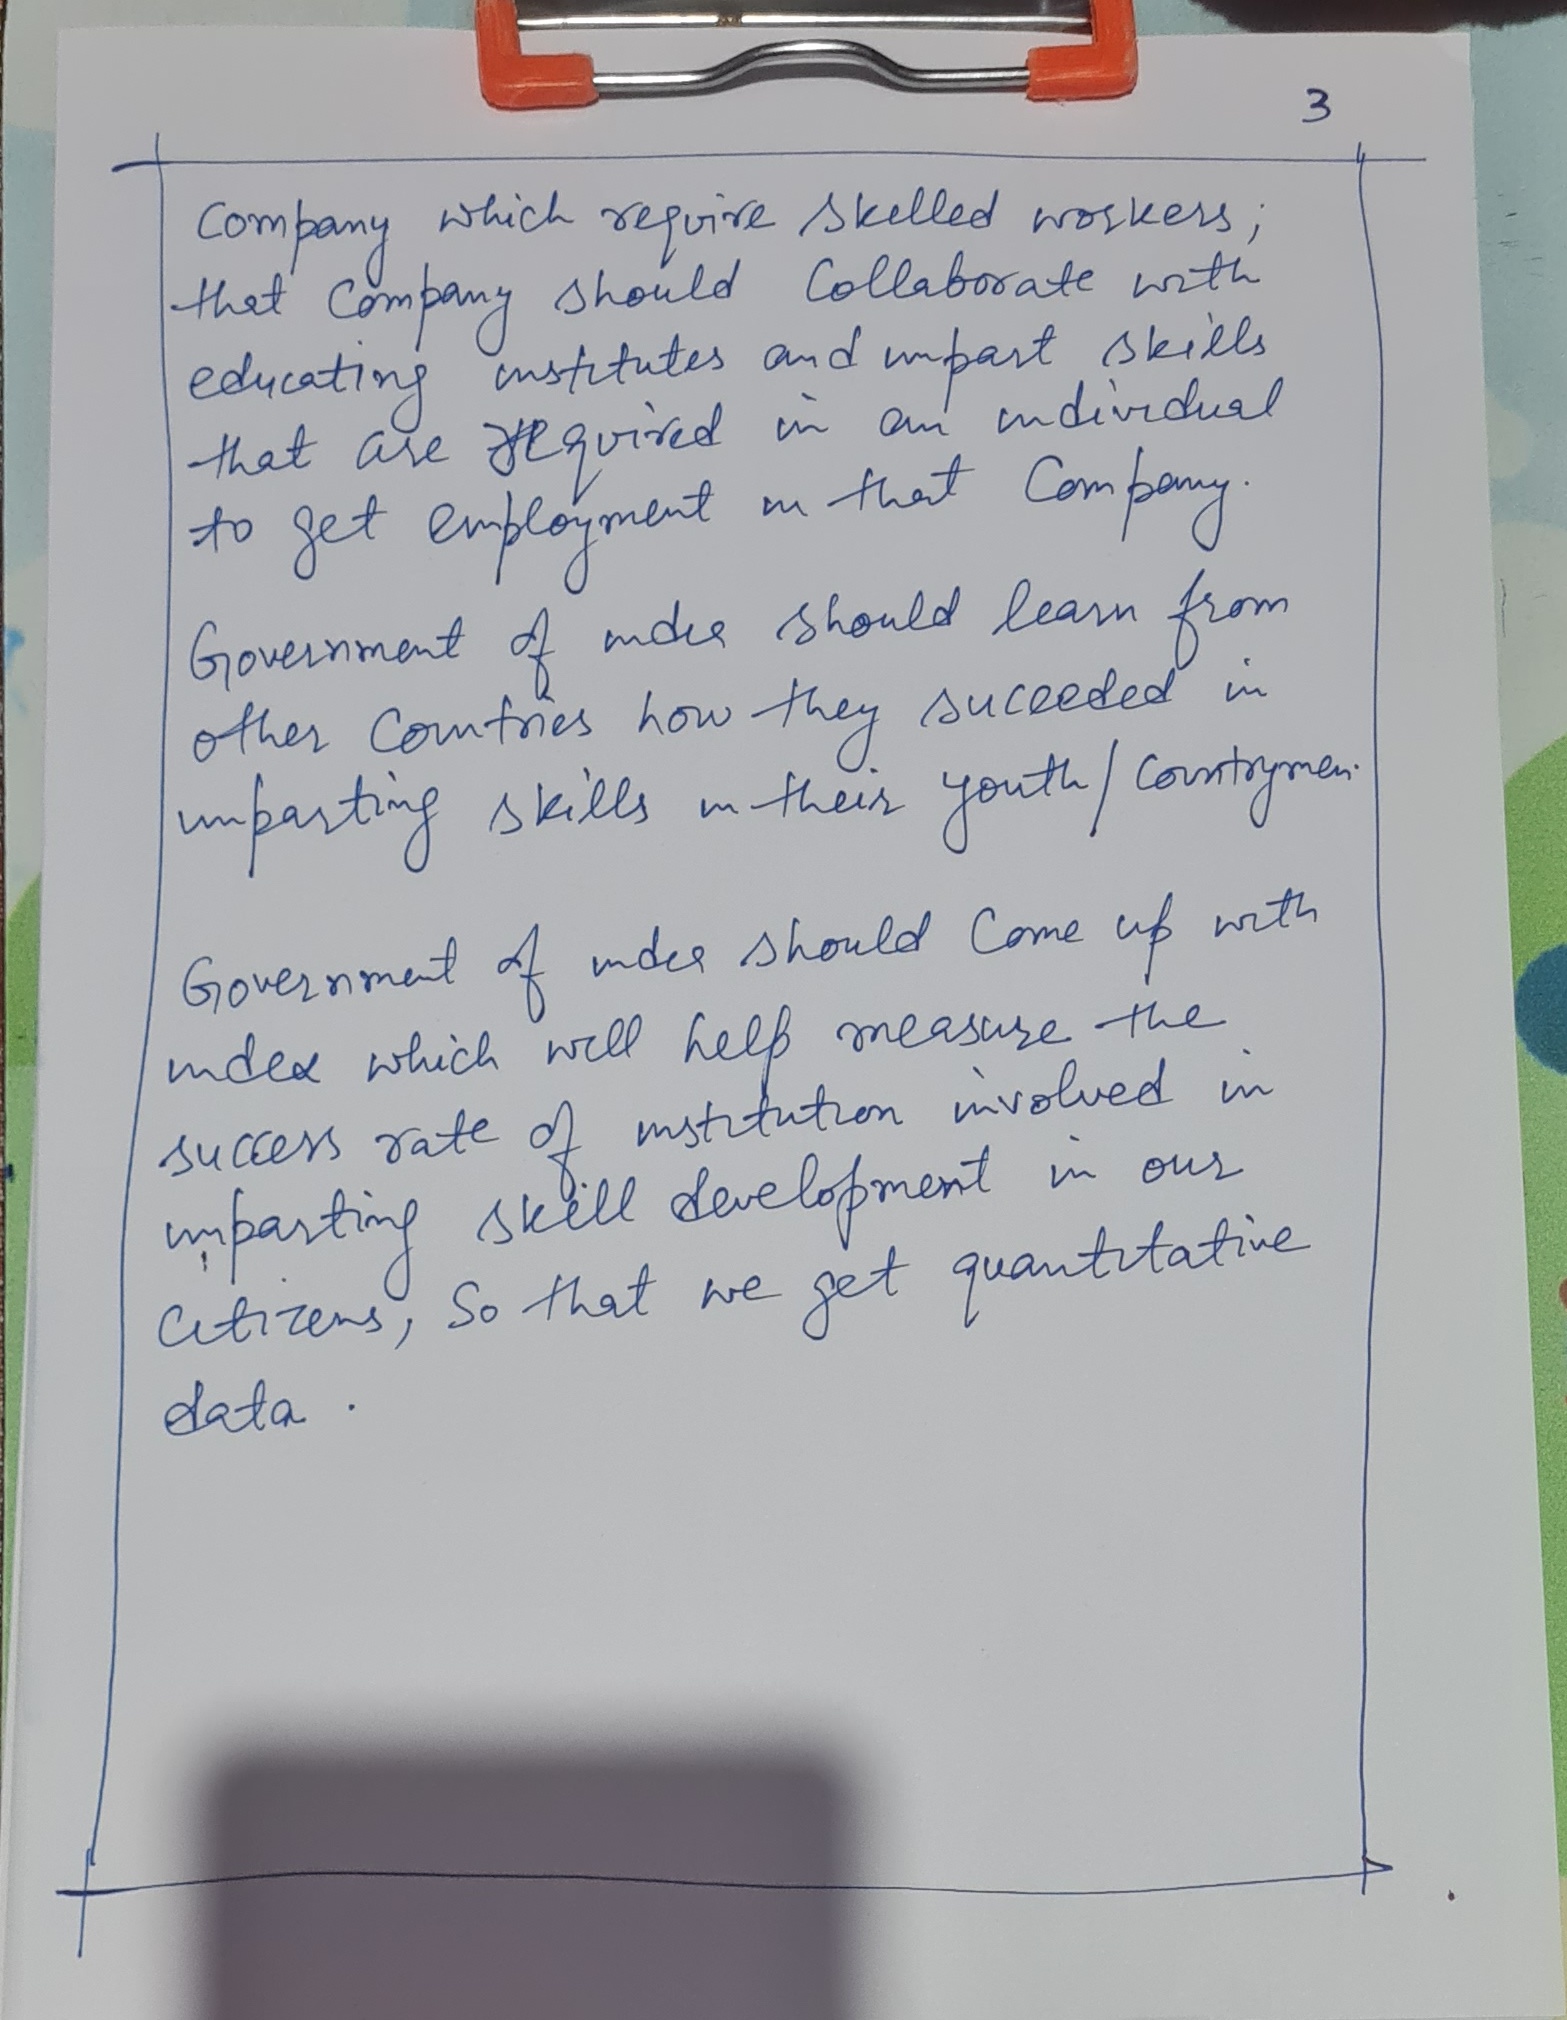 3
Company which require skilled workers;
that Company should Collaborate with
educating institutes and impart skills
that are required in an individual
to get employment in that Company.
Government of india should learn from
other Countries how they suceeded in
imparting skills in their youth/Countrymen.
Government of india should Come up with
index which will help measure the
success rate of institution involved in
imparting skill development in our
Citizens, So that we get quantitative
data.